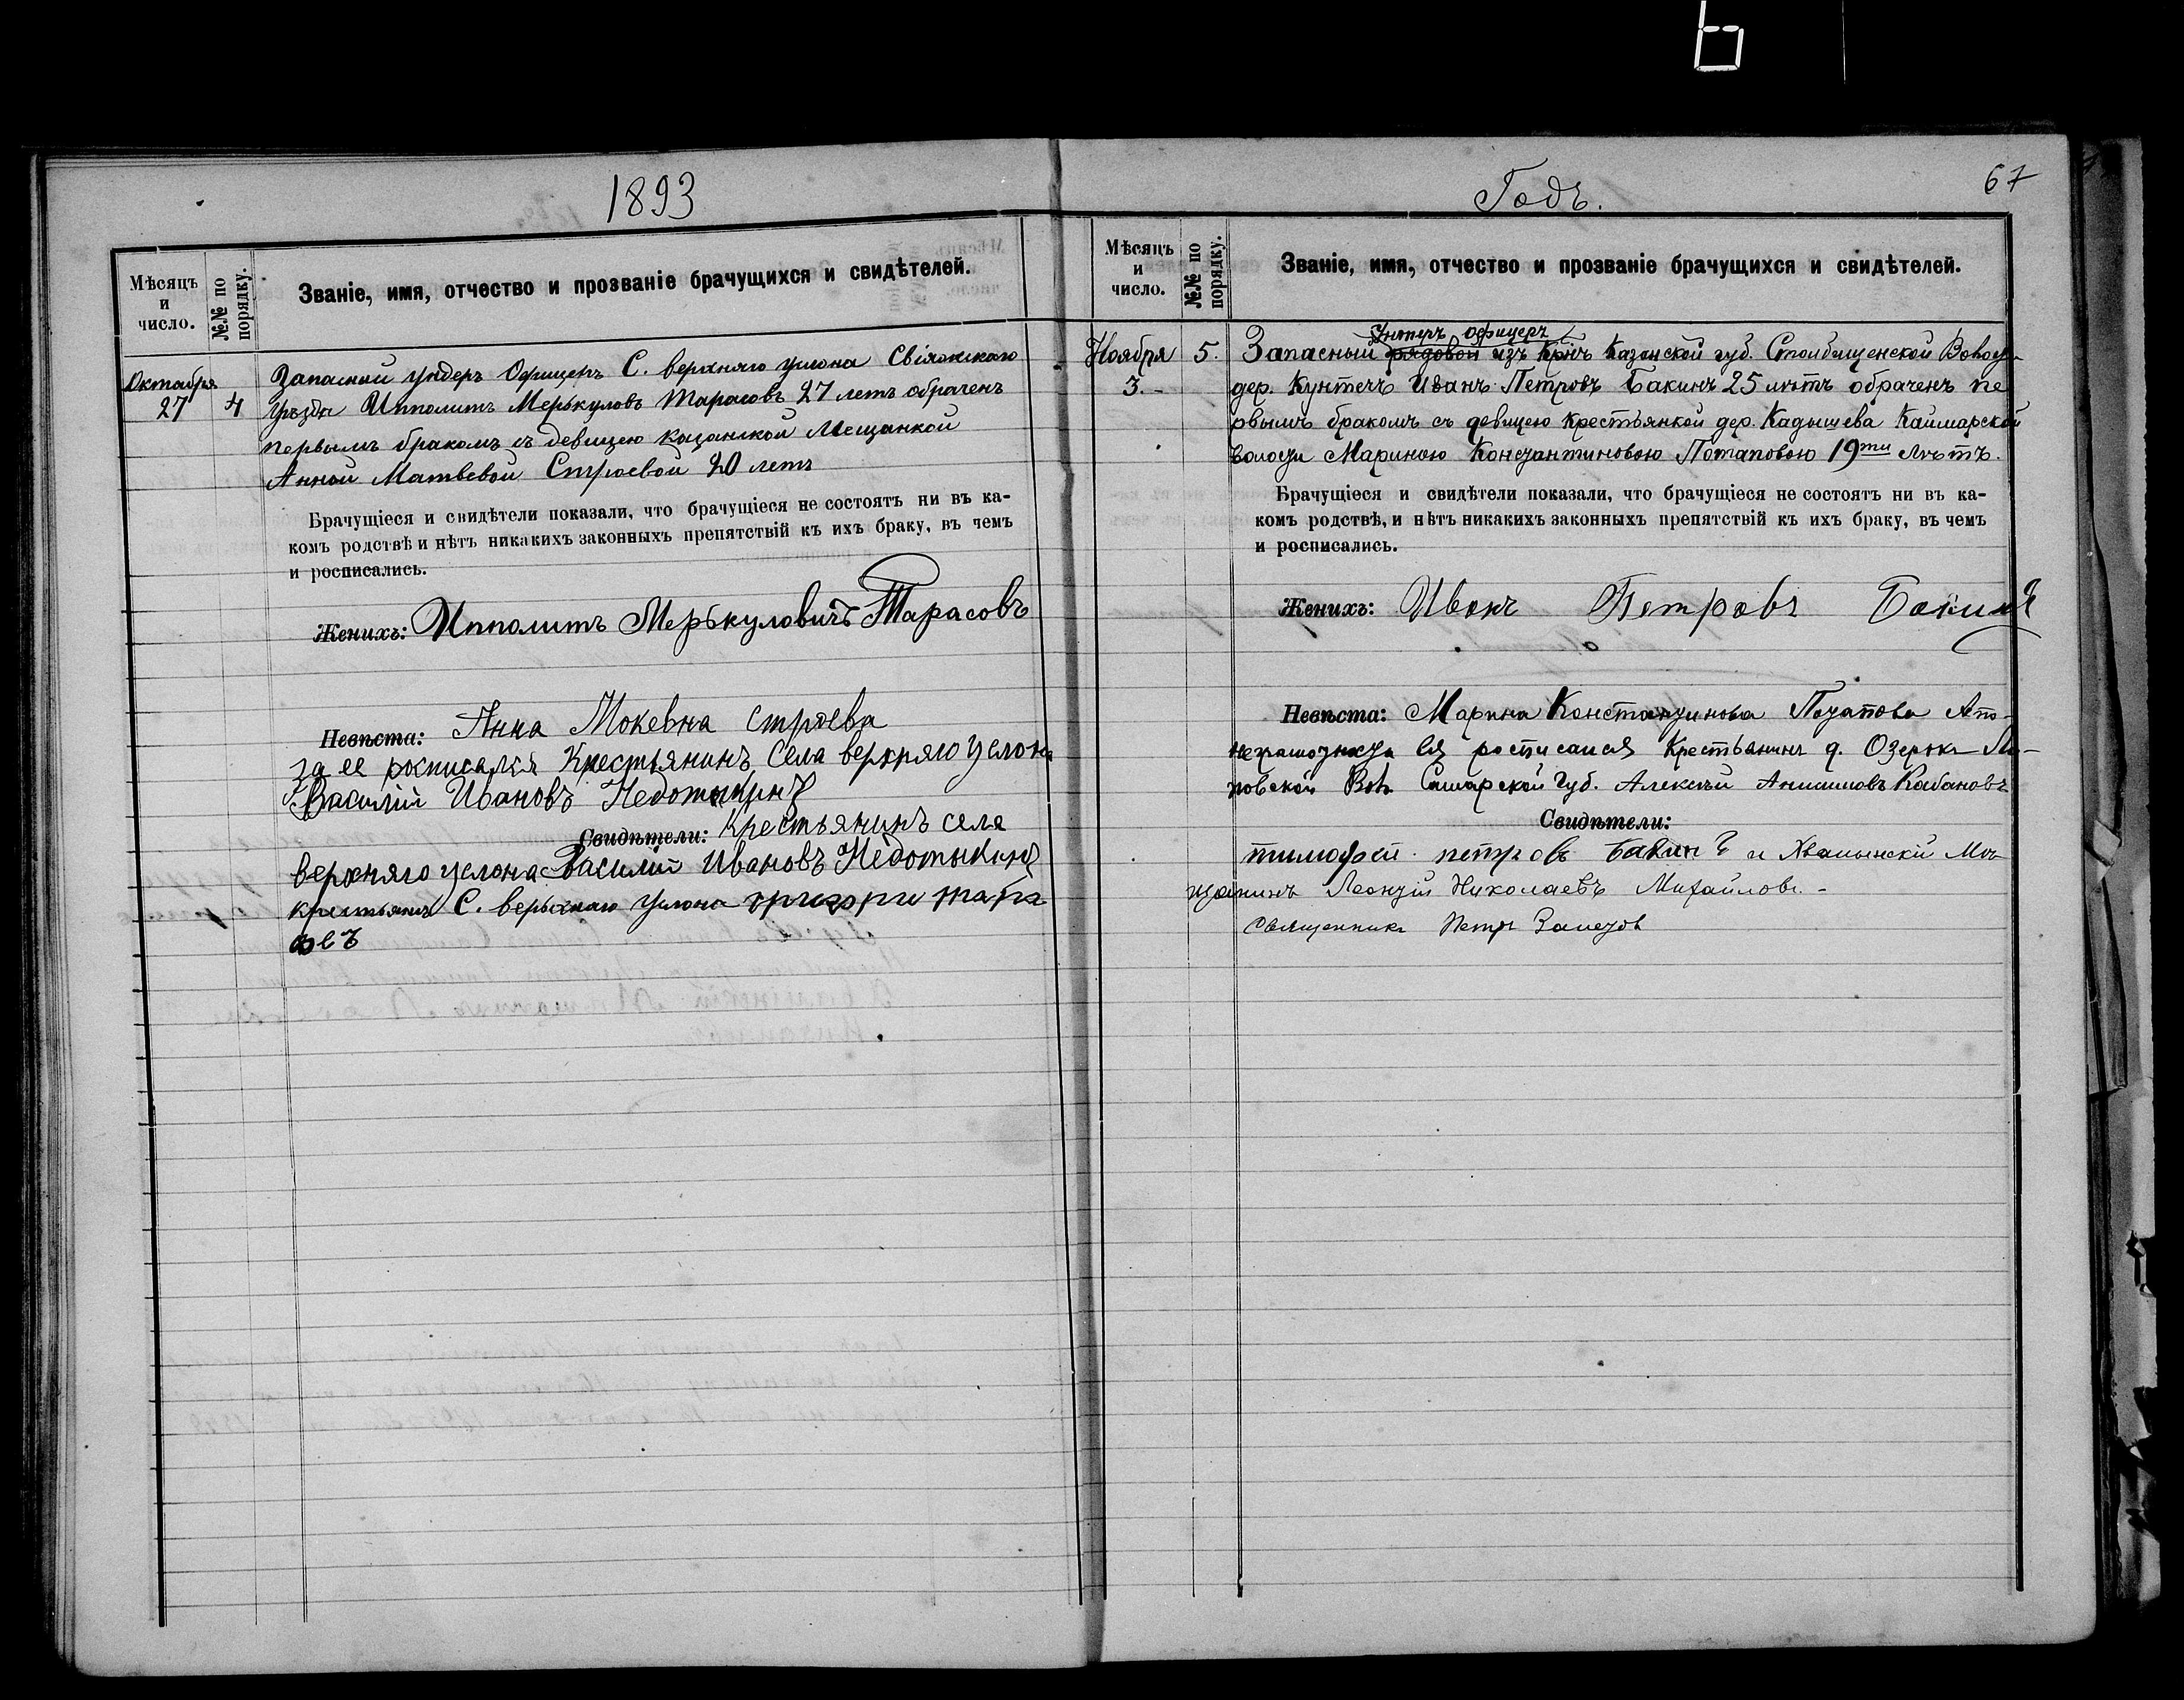 1893
Мѣсяцъ
и
число.
№№ по
порядку.
Званіе, имя, отчество и прозваніе брачущихся и свидѣтелей.
Октабря
27
4
Запасный ундеръ Офицеръ С. верхняго услона Свіяжскаго
Уѣзда Ипполитъ Мерькуловъ Тарасовъ 27 летъ обраченъ
первымъ бракомъ съ девицею казанской Мещанкой
Анной Матвевой Строевой 20 летъ
Брачущіеся и свидѣтели показали, что брачущіеся не состоятъ ни въ ка-
комъ родствѣ и нѣтъ никакихъ законныхъ препятствій къ ихъ браку, въ чемъ
и росписались.
Женихъ: Ипполитъ Мерькуловичъ Тарасовъ
Невѣста: Анна Мокевна строева
за ее роспислся Крестьянинъ Села верхняго услона
Василий Ивановъ Недотыкинъ
Свидѣтели: Крестьянинъ села
верхняго услона Василий Ивановъ Недотыкинъ
крестьянъ С. верьхнаго Услона григори тара
совъ
Годъ.
67
Мѣсяцъ
и
число.
№№ по
порядку.
Званіе, имя, отчество и прозваніе брачущихся и свидѣтелей.
Унтеръ офицеръ
Ноября
3.-
5.
Запасный рядовой изъ Крнъ Казанской губ. Столбищенской Волости
дер. Кунтечъ Иванъ Петровъ Бакинъ 25 лѣтъ обраченъ пе
рвымъ бракомъ съ девицею крестьянкой дер. Кадышева Каймарской
волости Мариною Константиновою Потаповою 19ти Лѣтъ.
Брачущіеся и свидѣтели показали, что брачущіеся не состоятъ ни въ ка-
комъ родствѣ, и нѣтъ никакихъ законныхъ препятствій къ ихъ браку, въ чемъ
и росписались.
Женихъ: Иванъ Петровъ Бакинъ
Невѣста: Марина Константинова Потапова Апо-
неграмотности ея росписался Крестьянинъ д. Озерки
повской Вол. Самарской Губ. Алексѣй Анисимовъ Кабановъ
Свидѣтели:
тимофей петровъ Бакинъ и Хвалынскій Мѣ
щанинъ Леонтій Николаевъ Михайловъ.-
Священникъ Петръ Залетов